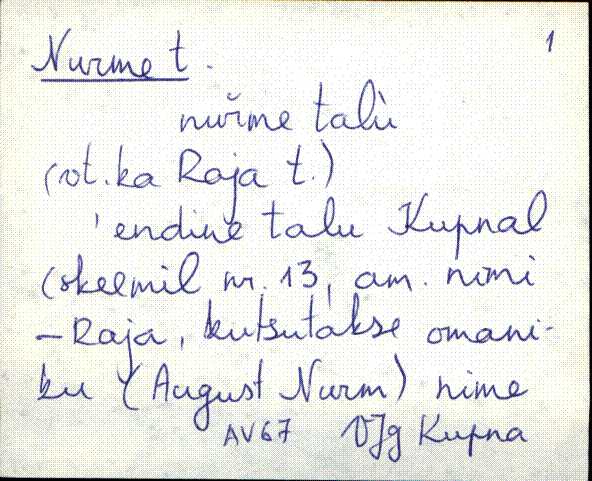 1
Nurme t.
nuřme talù
(vt. ka Raja t.)
'endine talu Kupnal
(skeemil nr. 13, am. nimi
– Raja, kutsutakse omani-
ku (August Nurm) nime
AV67 VJg Kupna